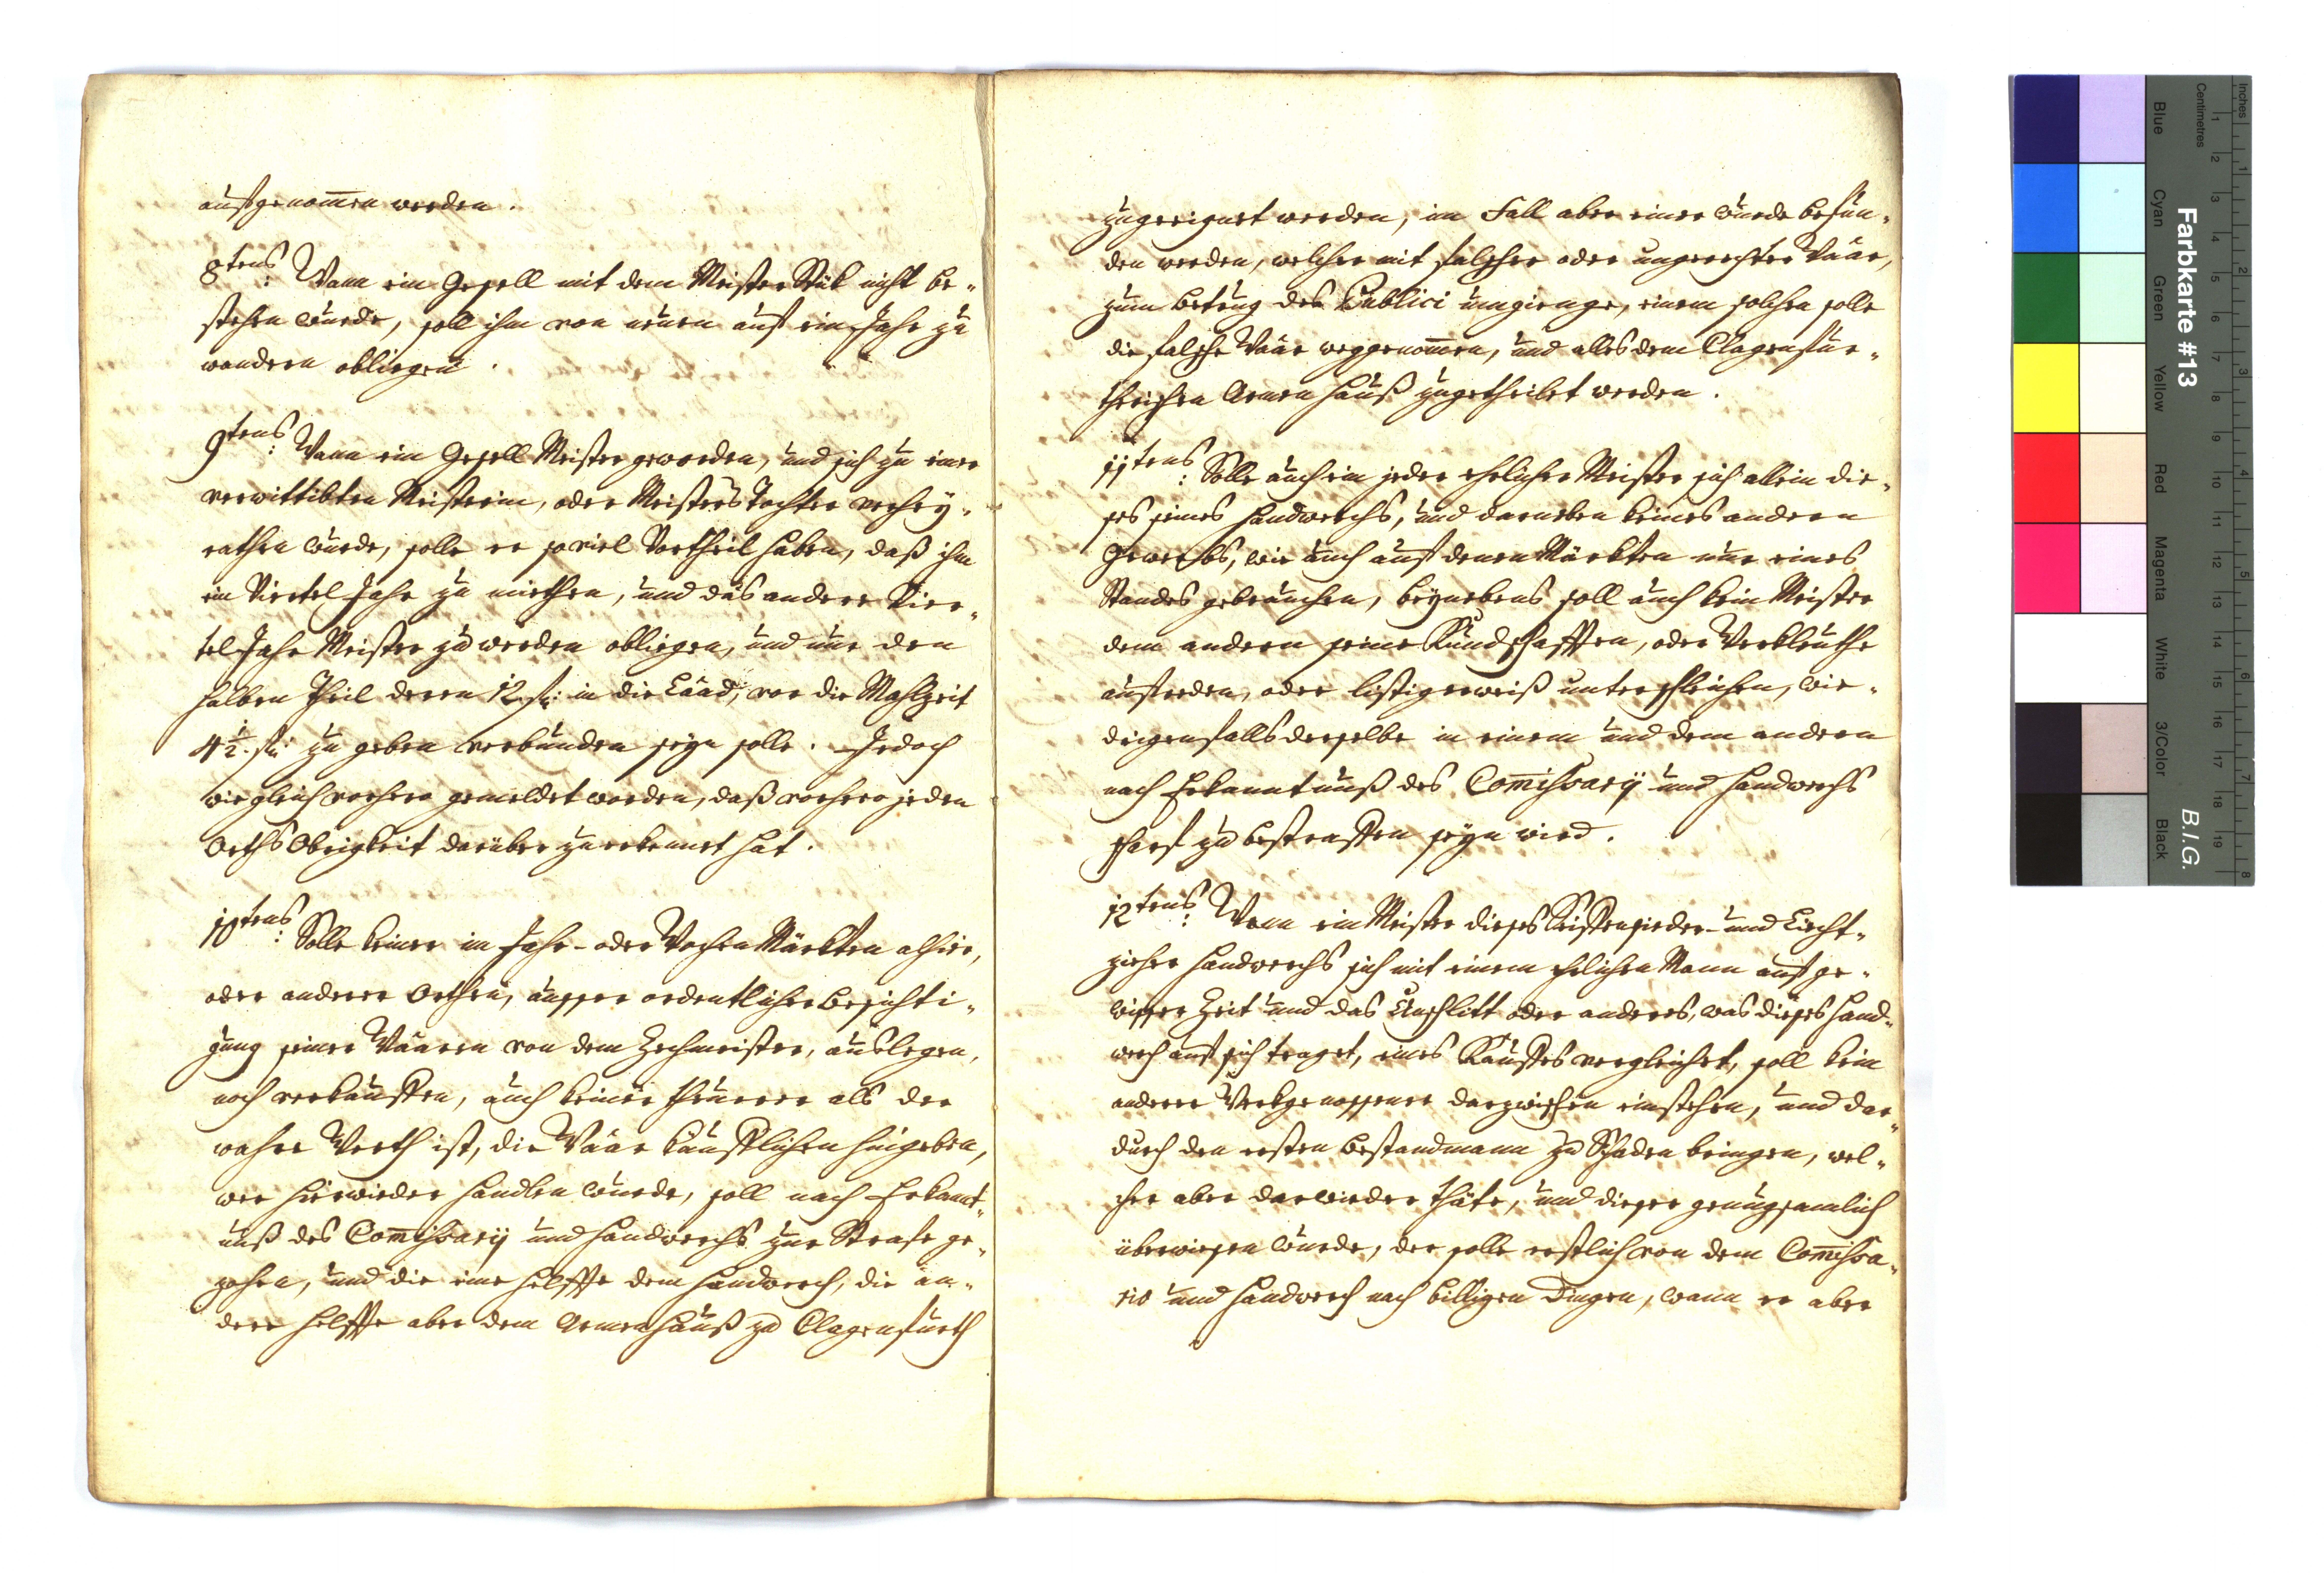 aufgenom̅en werden.
8tens: Wann ein Gesell mit dem Meister Stük nicht be-
stehen wurde, soll ihm von neuen auf ein Jahr zu
wandern obliegen.
9tens: Wann ein Gesell Meister geworden, und sich zu einer
verwittibten Meisterin, oder Meisters Tochter verhey-
rathen wurde, solle er so viel Vortheil haben, daß ihm
ein Viertel Jahr zu muthen, und das andere Vier-
tel Jahr Meister zu werden obliegen, und nur den
halben Theil deren 12 f: in die Laad, vor die Mahlzeit
4½ f: zu geben verbunden seyn solle. Jedoch
wie gleich vorhero gemeldet worden, daß vorhero jeden
Orths Obrigkeit darüber zuerkennet hat.
10tens: Solle keiner in Jahr- oder Wochen Märkten alhier,
oder anderer Orthen, ausser ordentlicher Besichti-
gung seiner Waaren von dem Zechmeister, auslegen,
noch verkauffen, auch keiner theurer als der
wahre Werth ist, die Waar kauflichen hingeben,
wer hierwieder handlen wurde, soll nach Erkant-
nuß des Com̅issarÿ und Handwerchs zur Strafe ge-
zohen, und die eine Helffte dem Handwerch, die an-
dere Helffte aber dem Armenhauß zu Clagenfurth
zugeeignet werden, im Fall aber einer wurde befun-
den werden, welcher mit falscher oder ungerechter Waar,
zum Betrug des Publici umgienge, einem solchen solle
die falsche Waar weggenom̅en, und alles dem Clagenfur-
therischen Armen Hauß zugetheilet werden.
11tens: Solle auch ein jeder ehrlicher Meister sich allein die-
ses seines Handwerchs, und darneben keines andern
Gewerbs, wie auch auf denen Märkten nur eines
Standes gebrauchen, beynebens soll auch kein Meister
dem andern seine Kundschafften, oder Werkleuthe
ausreden, oder listigerweiß unterschleichen, wie-
drigenfalls derselbe in einem und dem andern
nach Erkanntnuß des Com̅issarÿ und Handwerchs
scharf zu bestraffen seyn wird.
12tens: Wann ein Meister dieses Seiffensieder- und Liecht-
zieher Handwerchs sich mit einem ehrlichen Mann auf ge-
wisser Zeit und das Unschlitt oder anderes, was dieses Hand-
werch auf sich traget, eines Kauffes vergleichet, soll kein
anderer Werkgenossener darzwischen einstehen, und dar-
durch den ersten Bestandmann zu Schaden bringen, wel-
cher aber darwieder thäte, und dieser genugsamlich
überwiesen wurde, der solle erstlich von dem Com̅issa-
rio und Handwerch nach billigen Dingen, wann er aber
Farbkarte #13
B.I.G.
Inches
Centimetres
1 2 3 4 5 6 7 8
1 2 3 4 5 6 7 8 9 10 11 12 13 14 15 16 17 18 19
Blue
Cyan
Green
Yellow
Red
Magenta
White
3/Color
Black